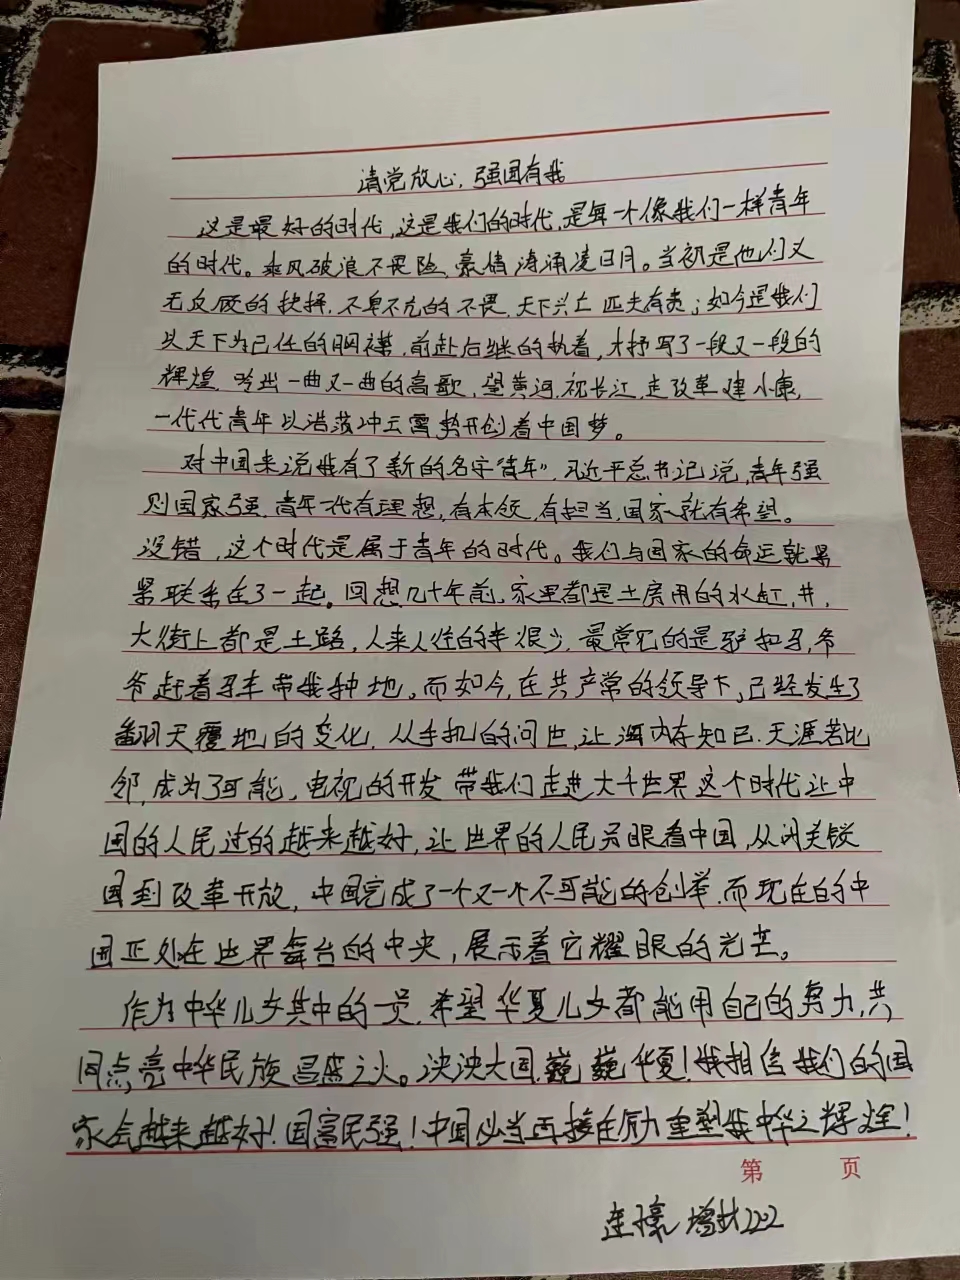 请党放心，强国有我
这是最好的时代，这是我们的时代，是每一个像我们一样青年
的时代。乘风破浪不畏险，豪情涛涌凌日月。当初是他们义
无反顾的抉择，不卑不亢的不畏，天下兴亡 匹夫有责；如今是我们
以天下为己任的胸襟，前赴后继的执着，才抒写了一段又一段的
辉煌，吟出一曲又一曲的高歌，望黄河，视长江，走改革 建小康，
一代代青年以浩荡冲云霄势开创着中国梦。
对中国来说我有了新的名字“青年”，习近平总书记说，青年强
则国家强，青年一代有理想，有本领，有担当，国家就有希望。
没错，这个时代是属于青年的时代。我们与国家的命运就累
累联系在了一起。回想几十年前，家里都是土房用的水缸，井，
大街上都是土路，人来人往的车很少，最常见的是驴和马，爷
爷赶着马车带我种地。而如今，在共产党的领导下，已经发生了
翻天覆地的变化，从手机的问世，让海内存知己，天涯若比
邻，成为了可能，电视的开发 带我们走进大千世界 这个时代让中
国的人民过的越来越好，让世界的人民另眼看中国，从闭关锁
国到改革开放，中国完成了一个又一个不可能的创举，而现在的中
国正处在世界舞台的中央，展示着它耀眼的光芒。
作为中华儿女其中的一员，希望华夏儿女都能用自己的努力，共
同点亮中华民族昌盛之火。泱泱大国，巍巍华夏！我相信我们的国
家会越来越好！国富民强！中国必当再接在厉 重塑我中华之辉煌！
第 页
2202